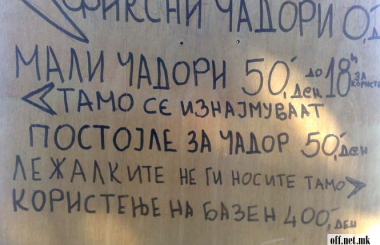 ФИКСНИ ЧАДОРИ
МАЛИ ЧАДОРИ 50,- ден ДО 18ч ЗА
ТАМО СЕ ИЗНАЈМУВААТ
ПОСТОЈЛЕ ЗА ЧАДОР 50,- ден
ЛЕЖАЛКИТЕ НЕ ГИ НОСИТЕ ТАМО
КОРИСТЕЊЕ НА БАЗЕН 400,- ден
off.net.mk